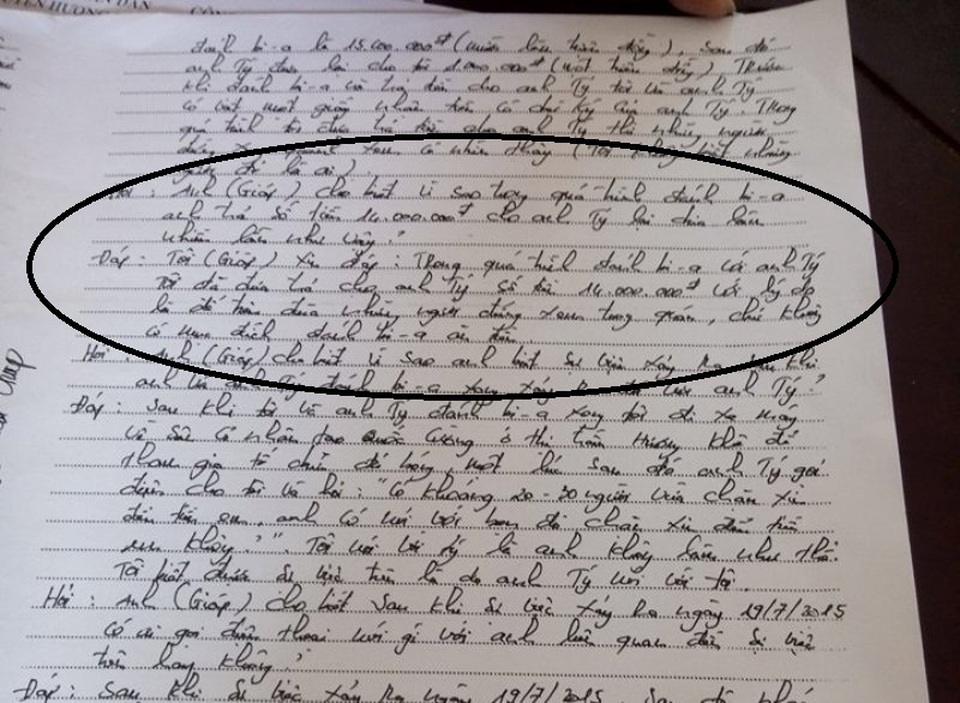 đánh bi-a là 15.000.000đ (mười lăm triệu đồng), sau đó
anh Tý đưa lại cho tôi 1.000.000đ (một triệu đồng) Trước
khi đánh bi-a và trả tiền cho anh Tý tôi và anh Tý
có viết một giấy nhận tiền có chữ ký của anh Tý. Trong
quá trình tôi đưa trả tiền cho anh Tý thì những người
đứng xung quanh xem có nhìn thấy (Tôi không biết những
người đó là ai).
Hỏi: Anh (Giáp) cho biết vì sao trong quá trình đánh bi-a
anh trả số tiền 14.000.000đ cho anh Tý lại đưa làm
nhiều lần như vậy?
Đáp: Tôi (Giáp) xin đáp: Trong quá trình đánh bi-a với anh Tý
tôi đã đưa trả cho anh Tý số tiền 14.000.000đ với lý do
là để trêu đùa những người đứng xem trong quán, chứ không
có mục đích đánh bi-a ăn tiền.
Hỏi: Anh (Giáp) cho biết vì sao anh biết sự việc xảy ra sau khi
anh và anh Tý đánh bi-a xong xảy ra đối với anh Tý?
Đáp: Sau khi tôi và anh Tý đánh bi-a xong tôi đi xe máy
về sân cỏ nhân tạo Quốc Cường ở thị trấn Hương Khê để
tham gia tổ chức đá bóng, một lúc sau đó anh Tý gọi
điện cho tôi và hỏi: "Có khoảng 20-30 người vừa chặn xin
đến tiền em, anh có nói với bọn đó chặn xin đến tiền
em không?". Tôi nói với Tý là anh không làm như thế.
Tôi biết được sự việc trên là do anh Tý nói với tôi.
Hỏi: Anh (Giáp) cho biết sau khi sự việc xảy ra ngày 19/7/2015
có ai gọi điện thoại nói gì với anh liên quan đến sự việc
trên hay không?
Đáp: Sau khi sự việc xảy ra ngày 19/7/2015